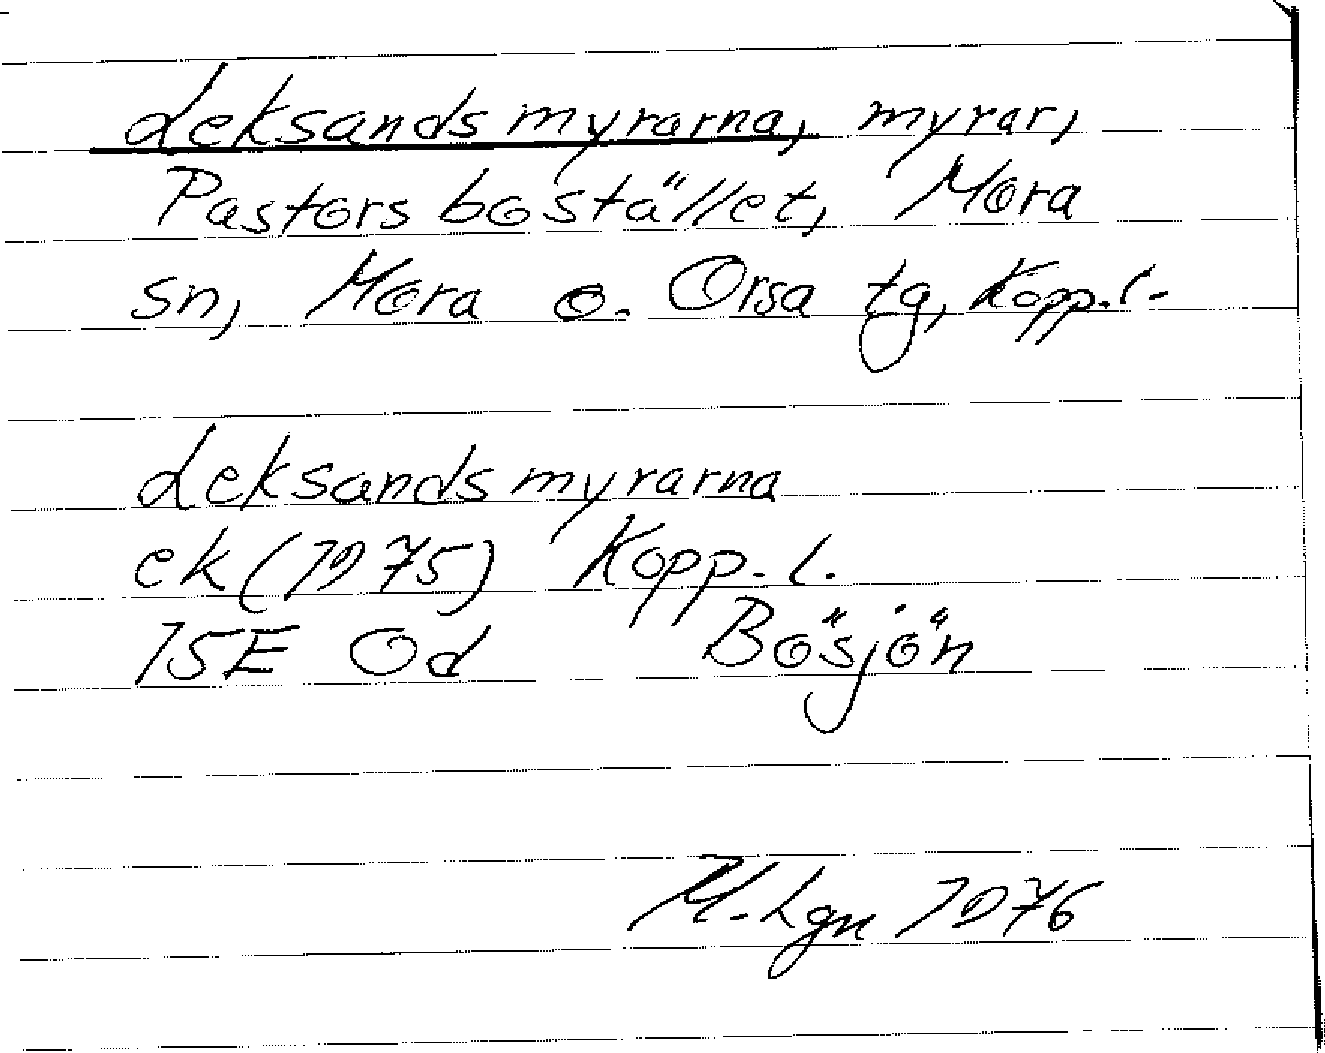 Leksandsmyrarna, myrar,
Pastorsbostället, Mora
sn, Mora o. Orsa tg, Kopp.l.
Leksandsmyrarna
ek (1975) Kopp.l.
15E Od Bösjön
M.Lgn 1976